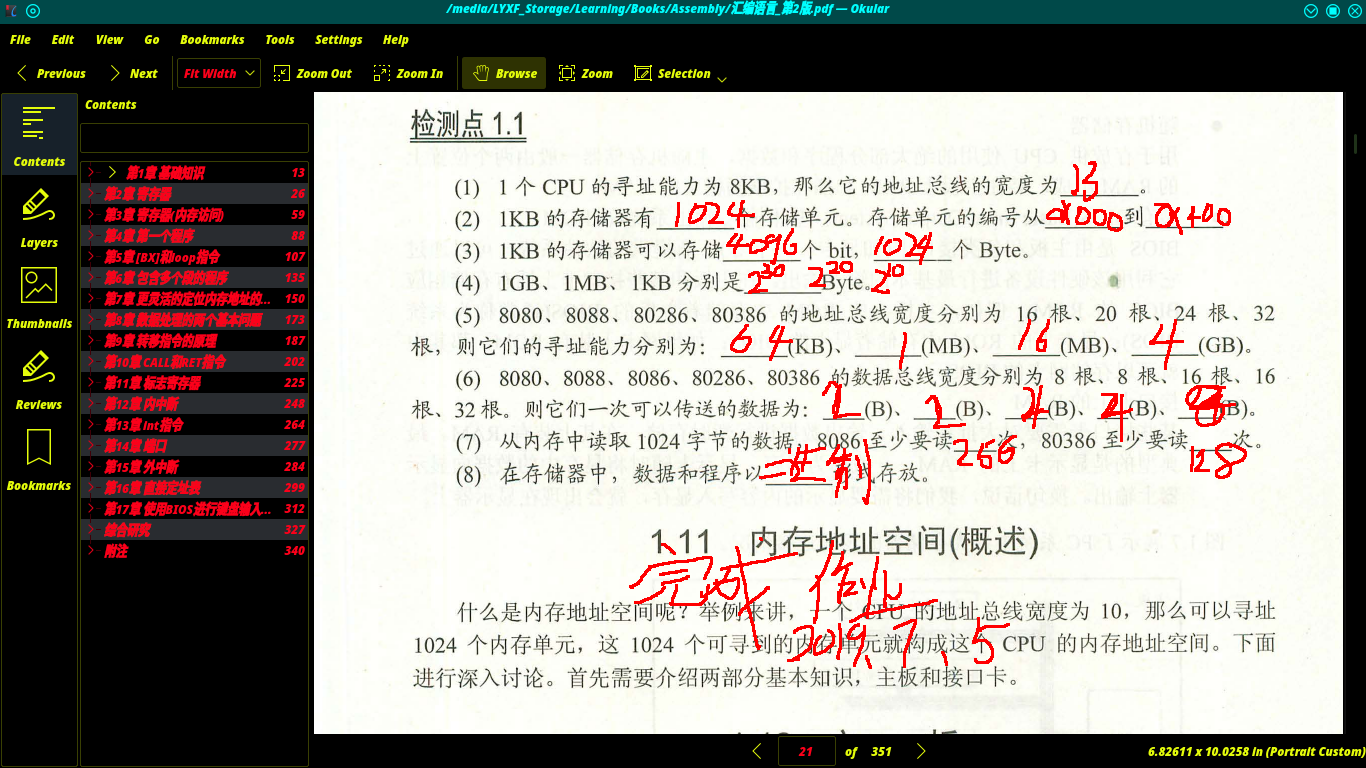 /media/LYXF_Storage/Learning/Books/Assembly/汇编语言_第2版.pdf — Okular
File Edit View Go Bookmarks Tools Settings Help
Previous Next Fit Width Zoom Out Zoom In Browse Zoom Selection
Contents
Contents
Layers
Thumbnails
Reviews
Bookmarks
第1章 基础知识 13
第2章 寄存器 26
第3章 寄存器(内存访问) 59
第4章 第一个程序 88
第5章 [BX]和loop指令 107
第6章 包含多个段的程序 135
第7章 更灵活的定位内存地址的... 150
第8章 数据处理的两个基本问题 173
第9章 转移指令的原理 187
第10章 CALL和RET指令 202
第11章 标志寄存器 225
第12章 内中断 248
第13章 int指令 264
第14章 端口 277
第15章 外中断 284
第16章 直接定址表 299
第17章 使用BIOS进行键盘输入... 312
综合研究 327
附注 340
检测点 1.1
(1) 1 个 CPU 的寻址能力为 8KB，那么它的地址总线的宽度为 13 。
(2) 1KB 的存储器有 1024 个存储单元。存储单元的编号从 0x000 到 0x400
(3) 1KB 的存储器可以存储 4096 个 bit，1024 个 Byte。
(4) 1GB、1MB、1KB 分别是 2^30 2^20 Byte。2^10
(5) 8080、8088、80286、80386 的地址总线宽度分别为 16 根、20 根、24 根、32
根，则它们的寻址能力分别为：64 (KB)、1 (MB)、16 (MB)、4 (GB)。
(6) 8080、8088、8086、80286、80386 的数据总线宽度分别为 8 根、8 根、16 根、16
根、32 根。则它们一次可以传送的数据为：(B)、(B)、(B)、4 (B)、(B)。
(7) 从内存中读取 1024 字节的数据，8086 至少要读 256 次，80386 至少要读 128 次。
(8) 在存储器中，数据和程序以 二进制 形式存放。
1.11 内存地址空间(概述)
完成 作业
2019.7.5
什么是内存地址空间呢？举例来讲，一个 CPU 的地址总线宽度为 10，那么可以寻址
1024 个内存单元，这 1024 个可寻到的内存单元就构成这个 CPU 的内存地址空间。下面
进行深入讨论。首先需要介绍两部分基本知识，主板和接口卡。
21 of 351
6.82611 x 10.0258 in (Portrait Custom)